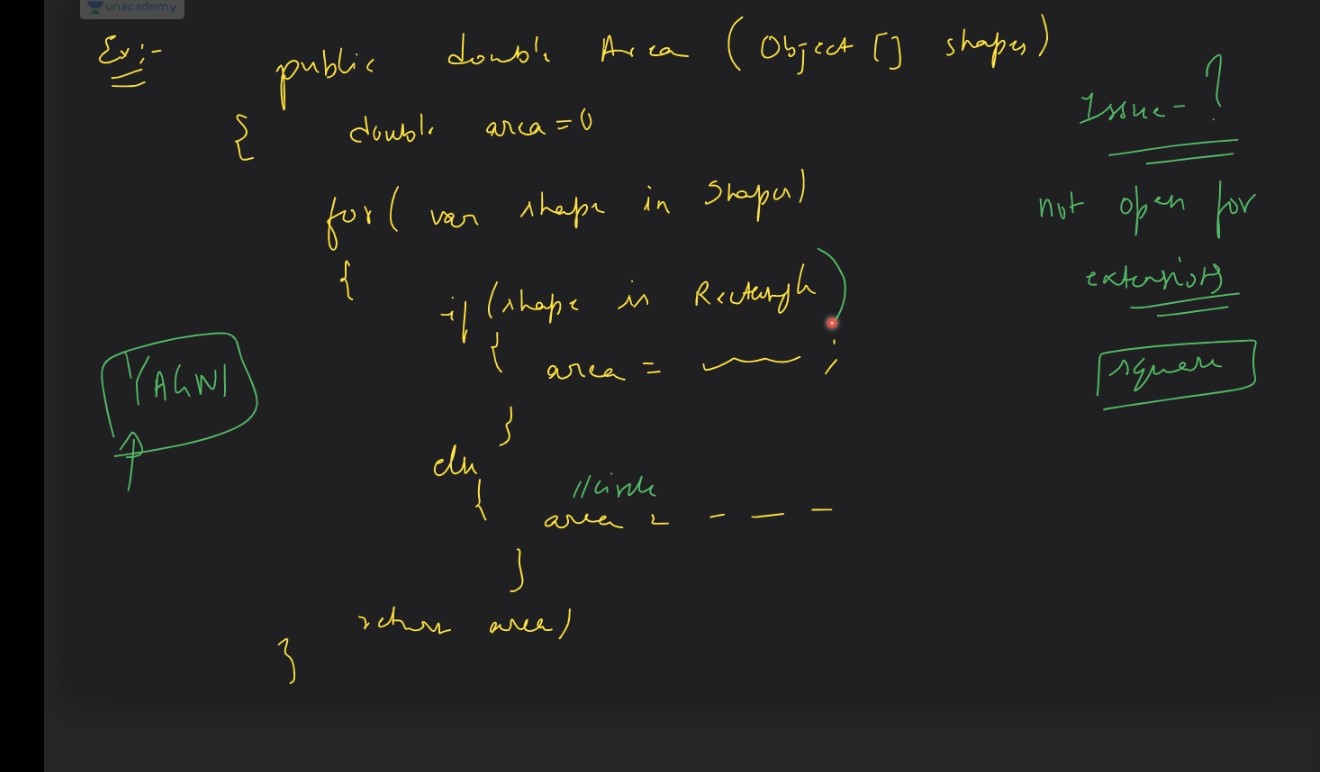 unacademy
Ex:-
public double Area (Object [] shapes)
{ double area = 0
for ( var shape in Shapes)
{
if (shape is Rectangle)
{ area = ;
}
else
{ //circle
area = - - -
}
return area;
}
YAGNI
Issue - ?
not open for
extensions
square